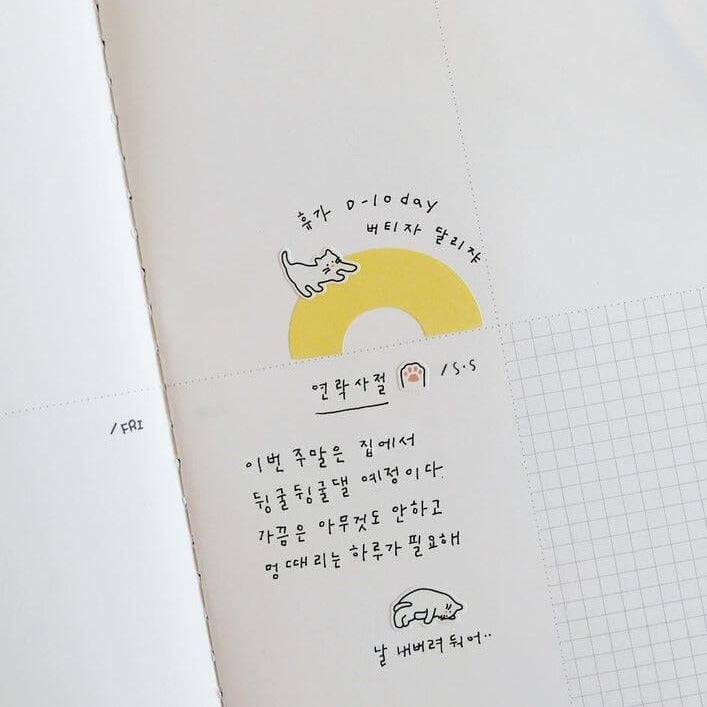 휴가 D-10day
버티자 달리쟈
연락사절 /S.S
/FRI
이번 주말은 집에서
뒹굴뒹굴댈 예정이다.
가끔은 아무것도 안하고
멍 때리는 하루가 필요해
날 내버려 둬어..